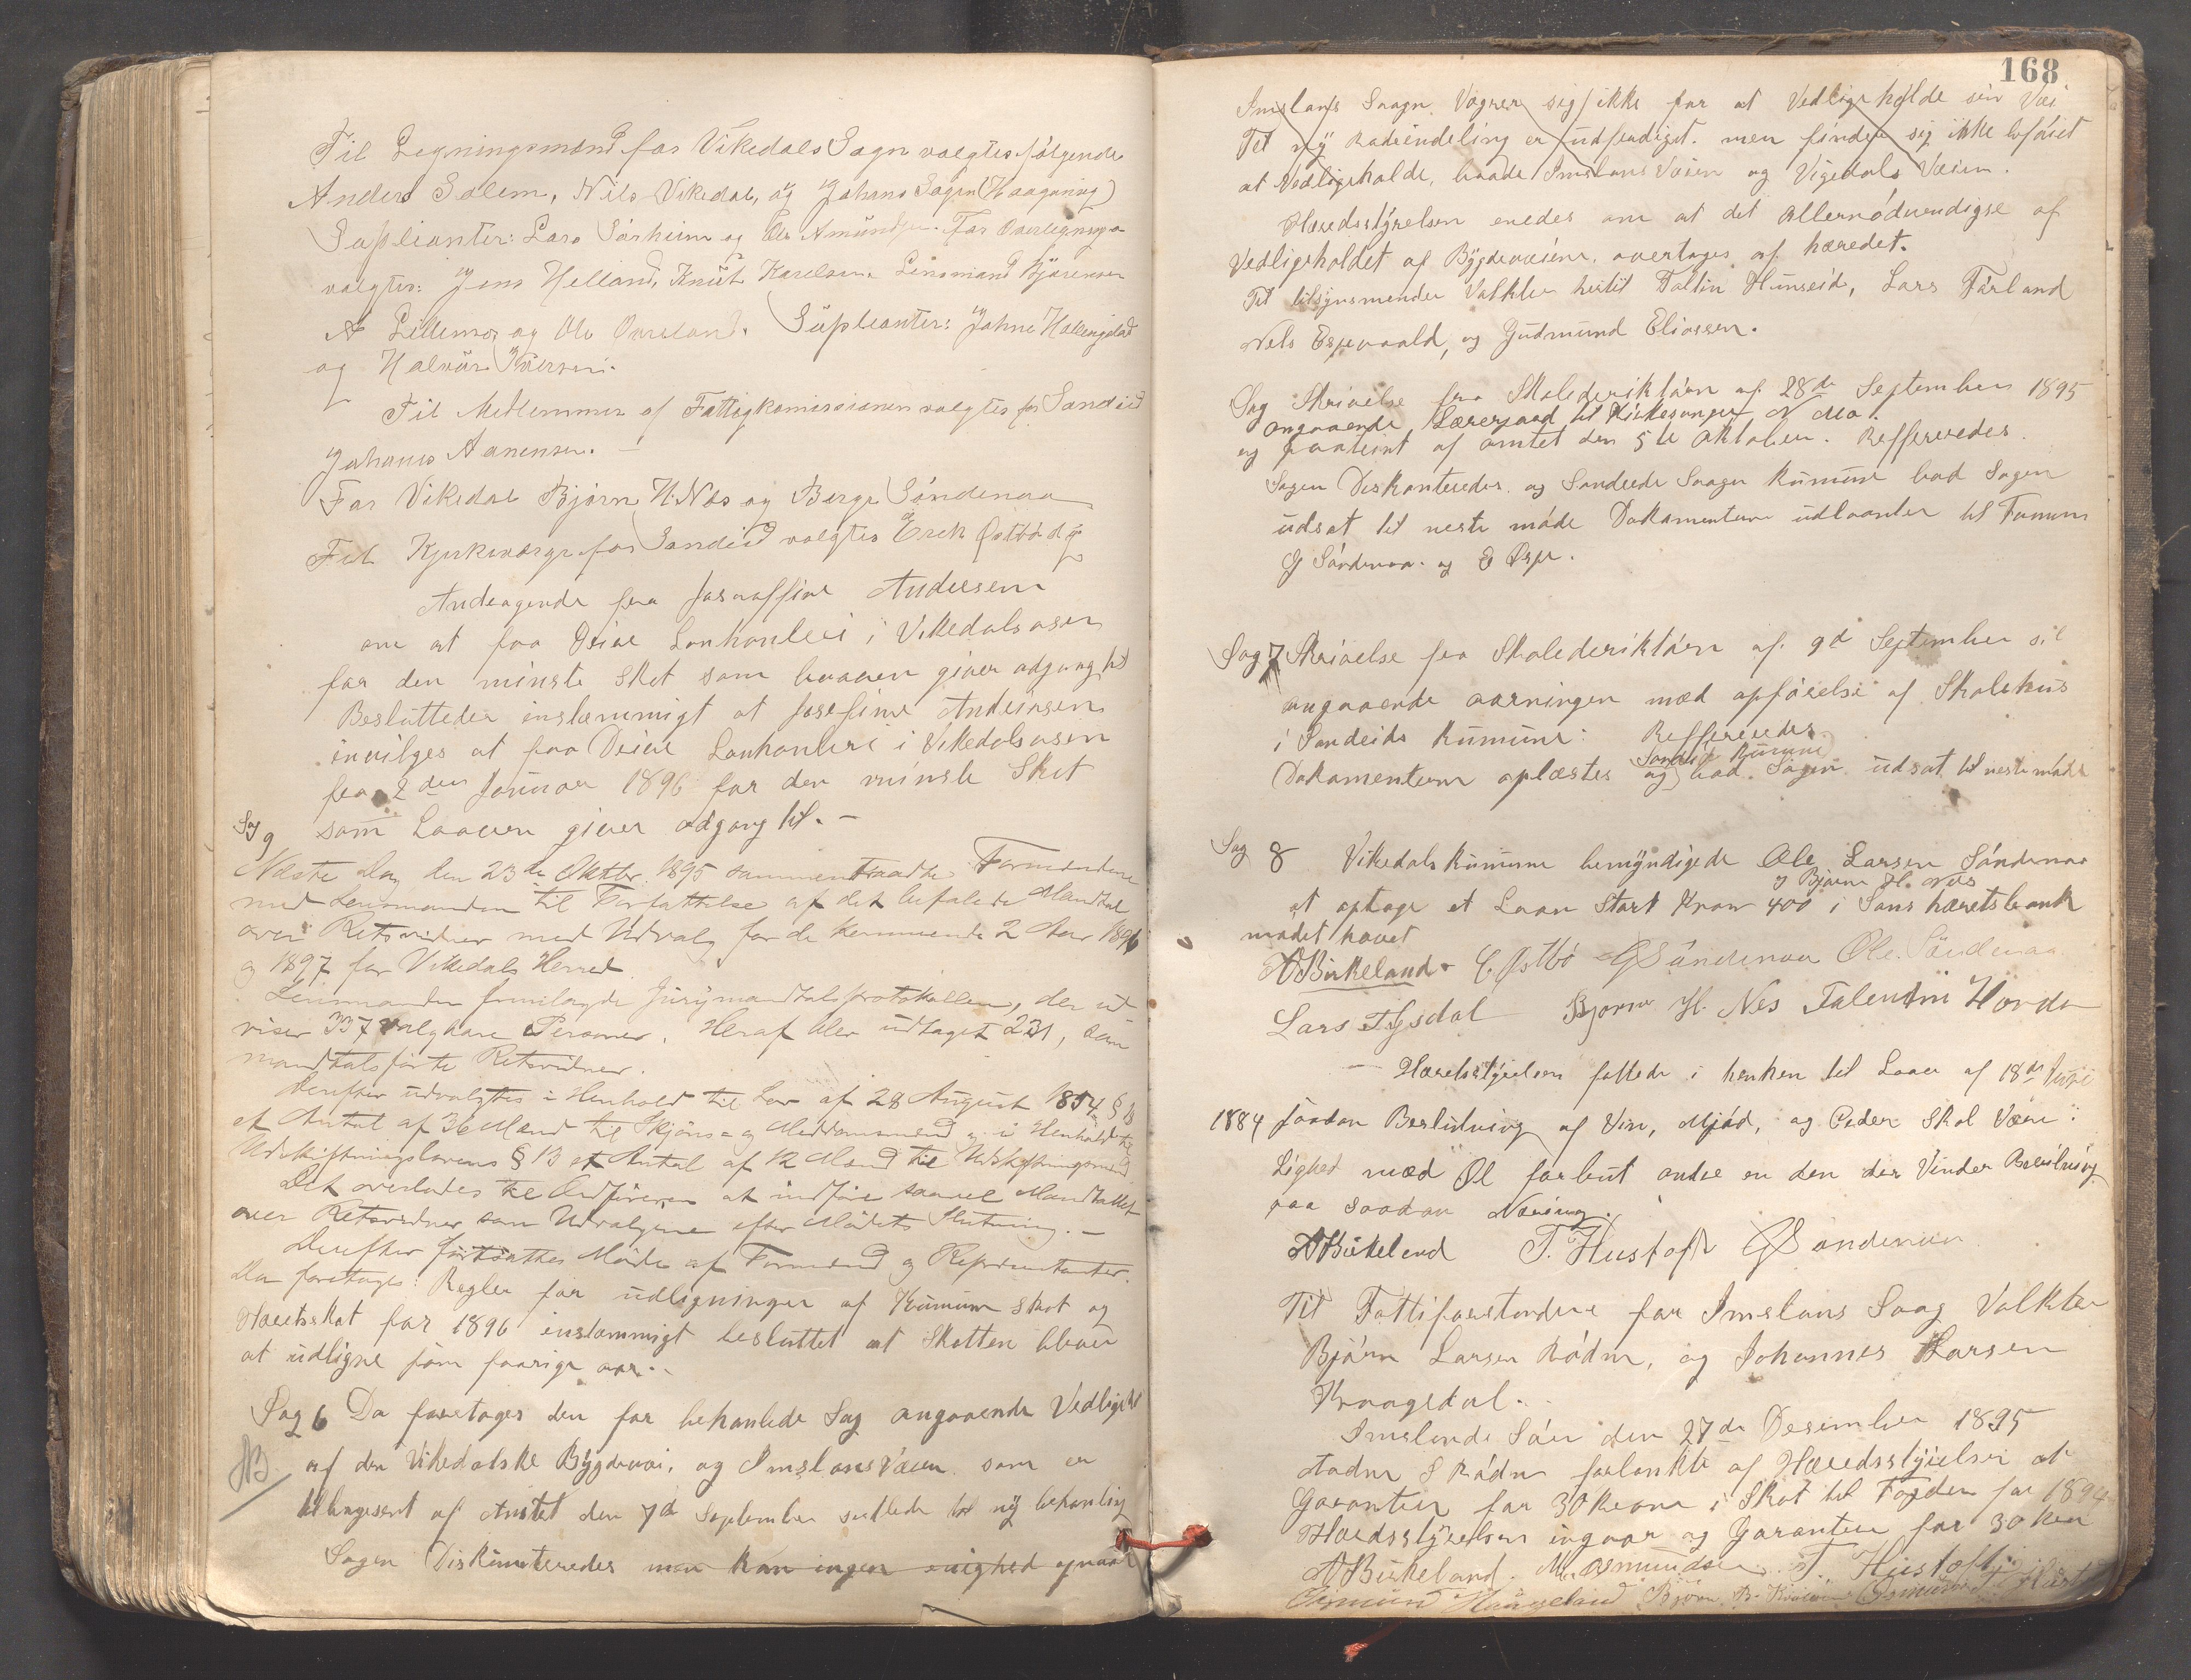 Til Legningsmænd for Vikedals Sogn valgtes følgende
Anders Salem, Nils Vikedal, og Johans Sagen (Haaganing)
Suplianter: Lars Sørheim og Ole Amundsen. For Overlegning
valgtes: Jens Helland, Knut Karelsen Linsmand Bjørensen
A Lillemos og Ole Ovreland. Suplianter: Johne Hallingstad
og Halvor Iversen.
Til Medlemmer af Fattigkomissionen valgtes for Sandeid
Johanes Aanensen. —
For Vikedal Bjørn H. Næs og Berge Söndenaa
Til Kjirkeværge for Sandeid valgtes Erek Østbö
Andragende fra Joseffine Andersen
om at faa Drive Lonhanleri i Vikedalsosen
for den minste Skat som loven giver adgang til
Besluttedes enstemmigt at Josefine Andersen
invilges at faa Drive Lonhanleri i Vikedalsosen
fra 2den Januar 1896 for den minste Skat
som Loven giver adgang til. —
Sag 9
Næste Dag den 23de Oktbr. 1895 sammentraadte Formændene
med Lensmanden til Forfattelse af det befalede Mandtal
over Retsvidner med Udvalg for de kommende 2 Aar 1896
og 1897 for Vikedals Herred.
Lensmanden fremlagde Jurymandtalsprotokollen, der ud-
viser 337 valgbare Personer. Heraf blev udtaget 231, som
mandtalsførte Retsvidner.
Derefter udvalgtes i Henhold til Lov af 28 August 1854 §
et Antal af 36 Mænd til Skjöns- og Meddomsmænd og i Henhold til
Udskiftningslovens § 13 et Antal af 12 Mænd til Udskiftningsmænd
Det overlodes til Ordføreren at indføre saavel Mandtallet
over Retsvidner som Udvalgene efter Mødets Slutning. —
Derefter fortsattes Möde af Formænd og Repræsentanter.
Da foretages: Regler for udligninger af Kumune skat og
Hæretsskat for 1896 enstemmigt besluttet at Skatten bliver
at udligne som forrige aar.
Sag 6 Da foretages den før behanlede Sag angaaende Vedligehol
NB. af den Vikedalske Bygdevei, og Imslansvæien som er
tilbagesent af Amtet den 7de September til ny behanling
Sagen Diskuteredes men kan ingen enighed opnaaes
168
Imslans Saagn Vægrer sig ikke for at Vedligeholde sin Vei
Til ny Rodeindeling er udferdiget. men finder sig ikke beföiet
at Vedligeholde, baade Imslans Væien og Vigedals Væien.
Hæredsstyrelsen enedes om at det allernödvendigse af
Vedligeholdet af Bygdeveiene overtages af hæredet.
Til tilsynsmender Valkter hertil Tallin Hunseid, Lars Fárland
Nels Espevaald, og Gudmund Eliassen.
Sag Skrivelse fra Skolederiktören af 28de September 1895
angaaende Lærerjord til Kirkesanger N Moa.
og paateint af amtet den 5te Oktober. Reffereredes.
Sagen Diskanteredes og Sandeide Saagn Kumune bad Sagen
udsat til neste móde Dokamenterne udlaantes til Formen
G Söndenaa og E Øspe.
Sag 7 Skrivelse fra Skolederiktören af 9de September sil
angaaende aarningen mæd opförelse af Skolehus
i Sandeids Kumune: Reffereredes
Sandeid Kumune
Dakamenterne oplæstes og bad Sagen udsat til neste möde
Sag 8 Vikedals Kumune bemyndigede Ole Larsen Söndenaa
og Bjørn H. Nes
at optage et Laan Stort Kroner 400 i Sans hæretsbank
mødet hævet
A Birkeland E. Østbø G Söndenaa Ole Söndenaa
Lars Tysdal Bjørn H. Nes Falentin Hovda
— Hæretsstyrelsen fattede i henhen til Laav af 18de Juni
1884 saadan Beslutning af Vin, Mjód, og Ceder Skal Være i
Lighed mæd Øl forbut andre en den der Vinder Bevilning
paa saadan Næring.
A Birkeland T. Hustoft G Söndenaa
Til Fattiforstandere for Imslans Saag Valkter
Bjórn Larsen Ródne, og Johannes Larsen
Kraagedal.
Imslands Söen den 27de Desember 1895
Aadne S Ródne forlankte af Hæredsstyrelsen at
Garantere for 30 Kroner i Skat til Fogden for 1894
Hæredsstyrelsen ingaar og Garantere for 30 Kroner
A Birkeland. M. Osmundsen. T. Hustoft
Gimund Haugeland Bjørn B.